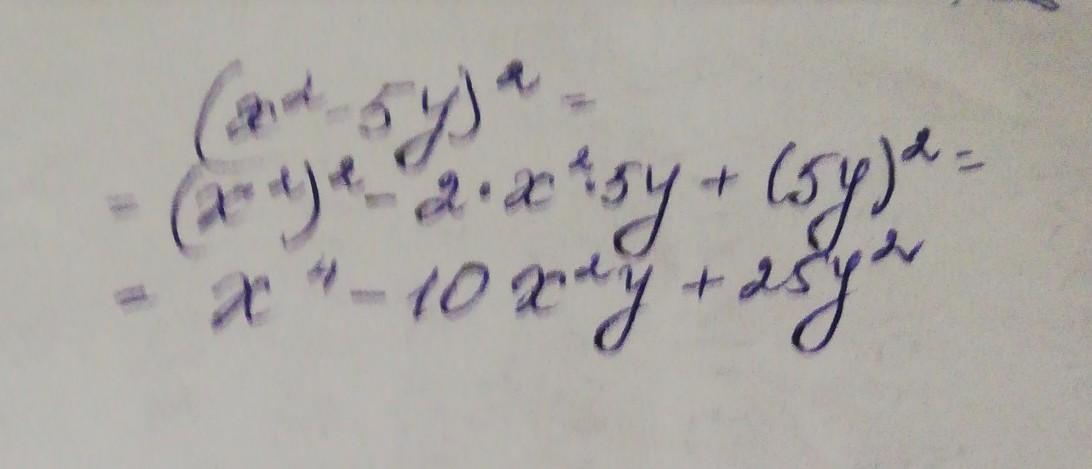 (x² - 5y)² =
= (x²)² - 2 · x² · 5y + (5y)² =
= x⁴ - 10x²y + 25y²